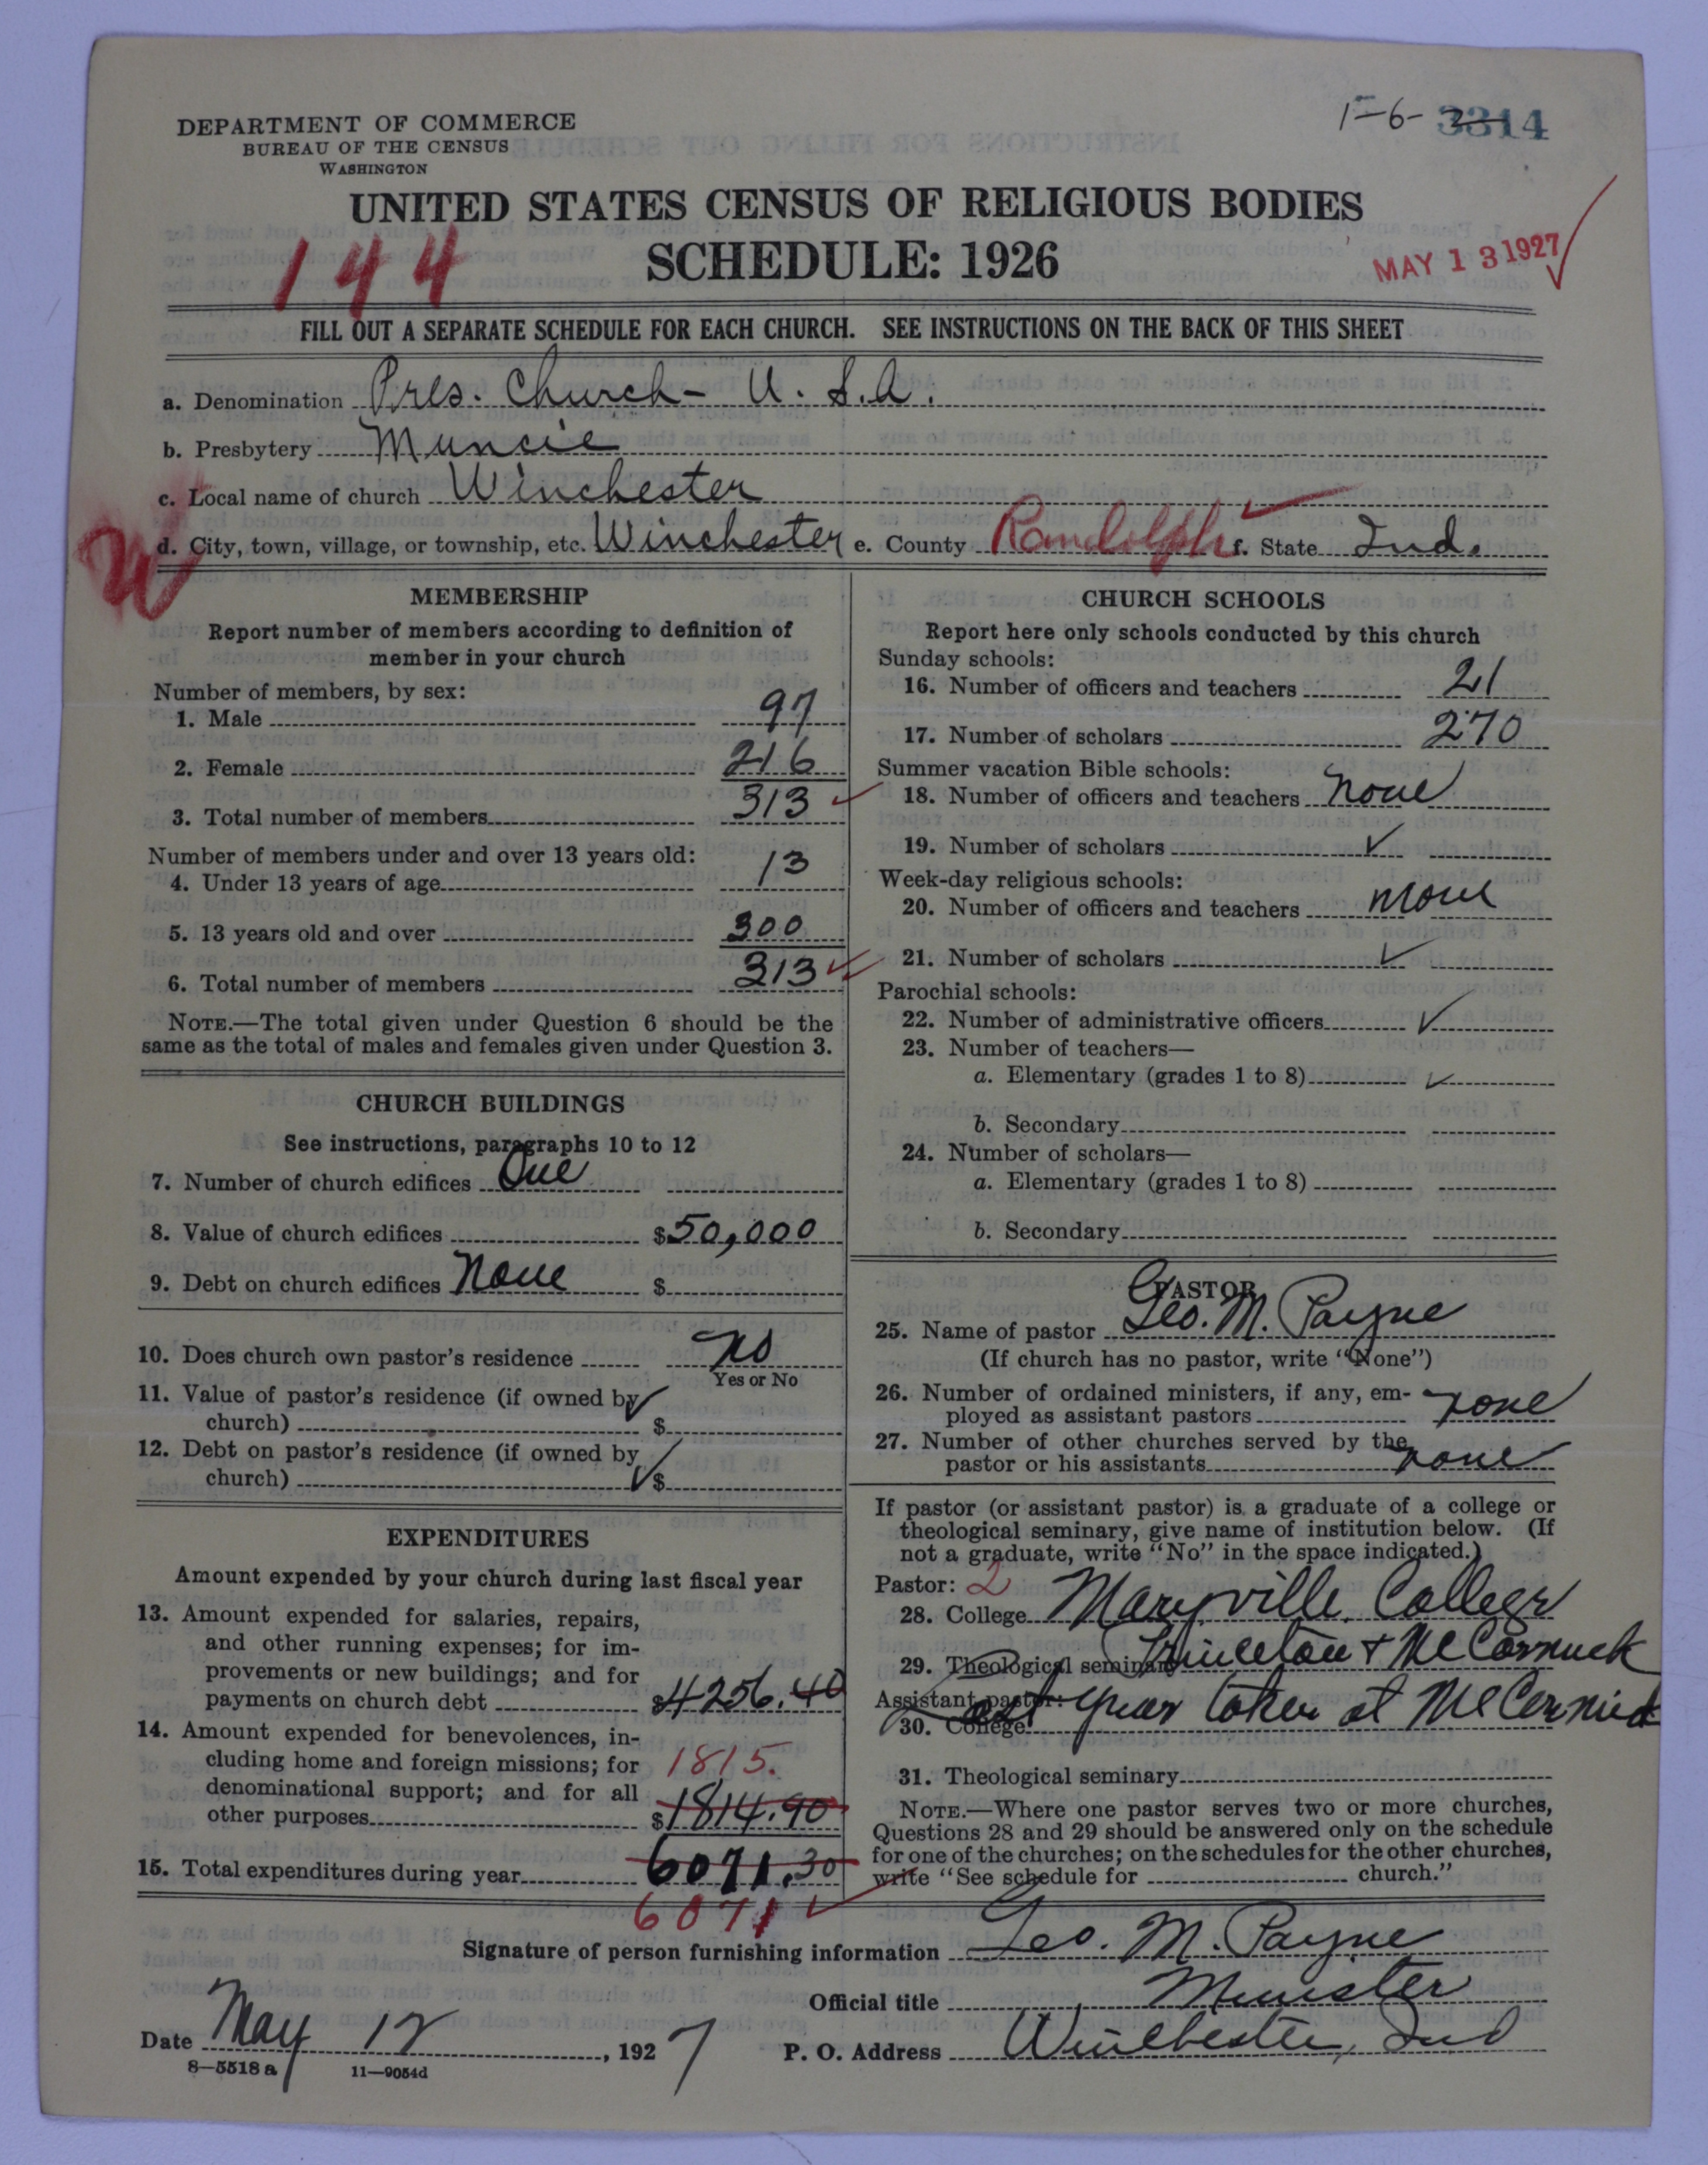 DEPARTMENT OF COMMERCE
BUREAU OF THE CENSUS
WASHINGTON
1-6- 3314
UNITED STATES CENSUS OF RELIGIOUS BODIES
SCHEDULE: 1926
144
MAY 13 1927
FILL OUT A SEPARATE SCHEDULE FOR EACH CHURCH. SEE INSTRUCTIONS ON THE BACK OF THIS SHEET
a. Denomination Pres. Church - U.S.A.
b. Presbytery Muncie
c. Local name of church Winchester
W
d. City, town, village, or township, etc. Winchester e. County Randolph f. State Ind.
MEMBERSHIP
Report number of members according to definition of
member in your church
Number of members, by sex:
1. Male 97
2. Female 216
3. Total number of members 313
Number of members under and over 13 years old:
4. Under 13 years of age 13
5. 13 years old and over 300
6. Total number of members 313
NOTE.—The total given under Question 6 should be the
same as the total of males and females given under Question 3.
CHURCH BUILDINGS
See instructions, paragraphs 10 to 12
7. Number of church edifices One
8. Value of church edifices $50,000
9. Debt on church edifices None $
10. Does church own pastor's residence no
Yes or No
11. Value of pastor's residence (if owned by
church) $
12. Debt on pastor's residence (if owned by
church) $
EXPENDITURES
Amount expended by your church during last fiscal year
13. Amount expended for salaries, repairs,
and other running expenses; for im-
provements or new buildings; and for
payments on church debt $4256.40
14. Amount expended for benevolences, in-
cluding home and foreign missions; for 1815.
denominational support; and for all
other purposes $1814.90
15. Total expenditures during year 6071.30
6071
CHURCH SCHOOLS
Report here only schools conducted by this church
Sunday schools:
16. Number of officers and teachers 21
17. Number of scholars 270
Summer vacation Bible schools:
18. Number of officers and teachers none
19. Number of scholars
Week-day religious schools:
20. Number of officers and teachers none
21. Number of scholars
Parochial schools:
22. Number of administrative officers
23. Number of teachers—
a. Elementary (grades 1 to 8)
b. Secondary
24. Number of scholars—
a. Elementary (grades 1 to 8)
b. Secondary
PASTOR
25. Name of pastor Geo. M. Payne
(If church has no pastor, write "None")
26. Number of ordained ministers, if any, em-
ployed as assistant pastors none
27. Number of other churches served by the
pastor or his assistants none
If pastor (or assistant pastor) is a graduate of a college or
theological seminary, give name of institution below. (If
not a graduate, write "No" in the space indicated.)
Pastor: 2
28. College Maryville College
29. Theological seminary Princeton & McCormick
Assistant pastor: Last year taken at McCormick
30. College
31. Theological seminary
NOTE.—Where one pastor serves two or more churches,
Questions 28 and 29 should be answered only on the schedule
for one of the churches; on the schedules for the other churches,
write "See schedule for church."
Signature of person furnishing information Geo. M. Payne
Official title Minister
Date May 12, 1927 P. O. Address Winchester, Ind
8—5518 a 11—9054d